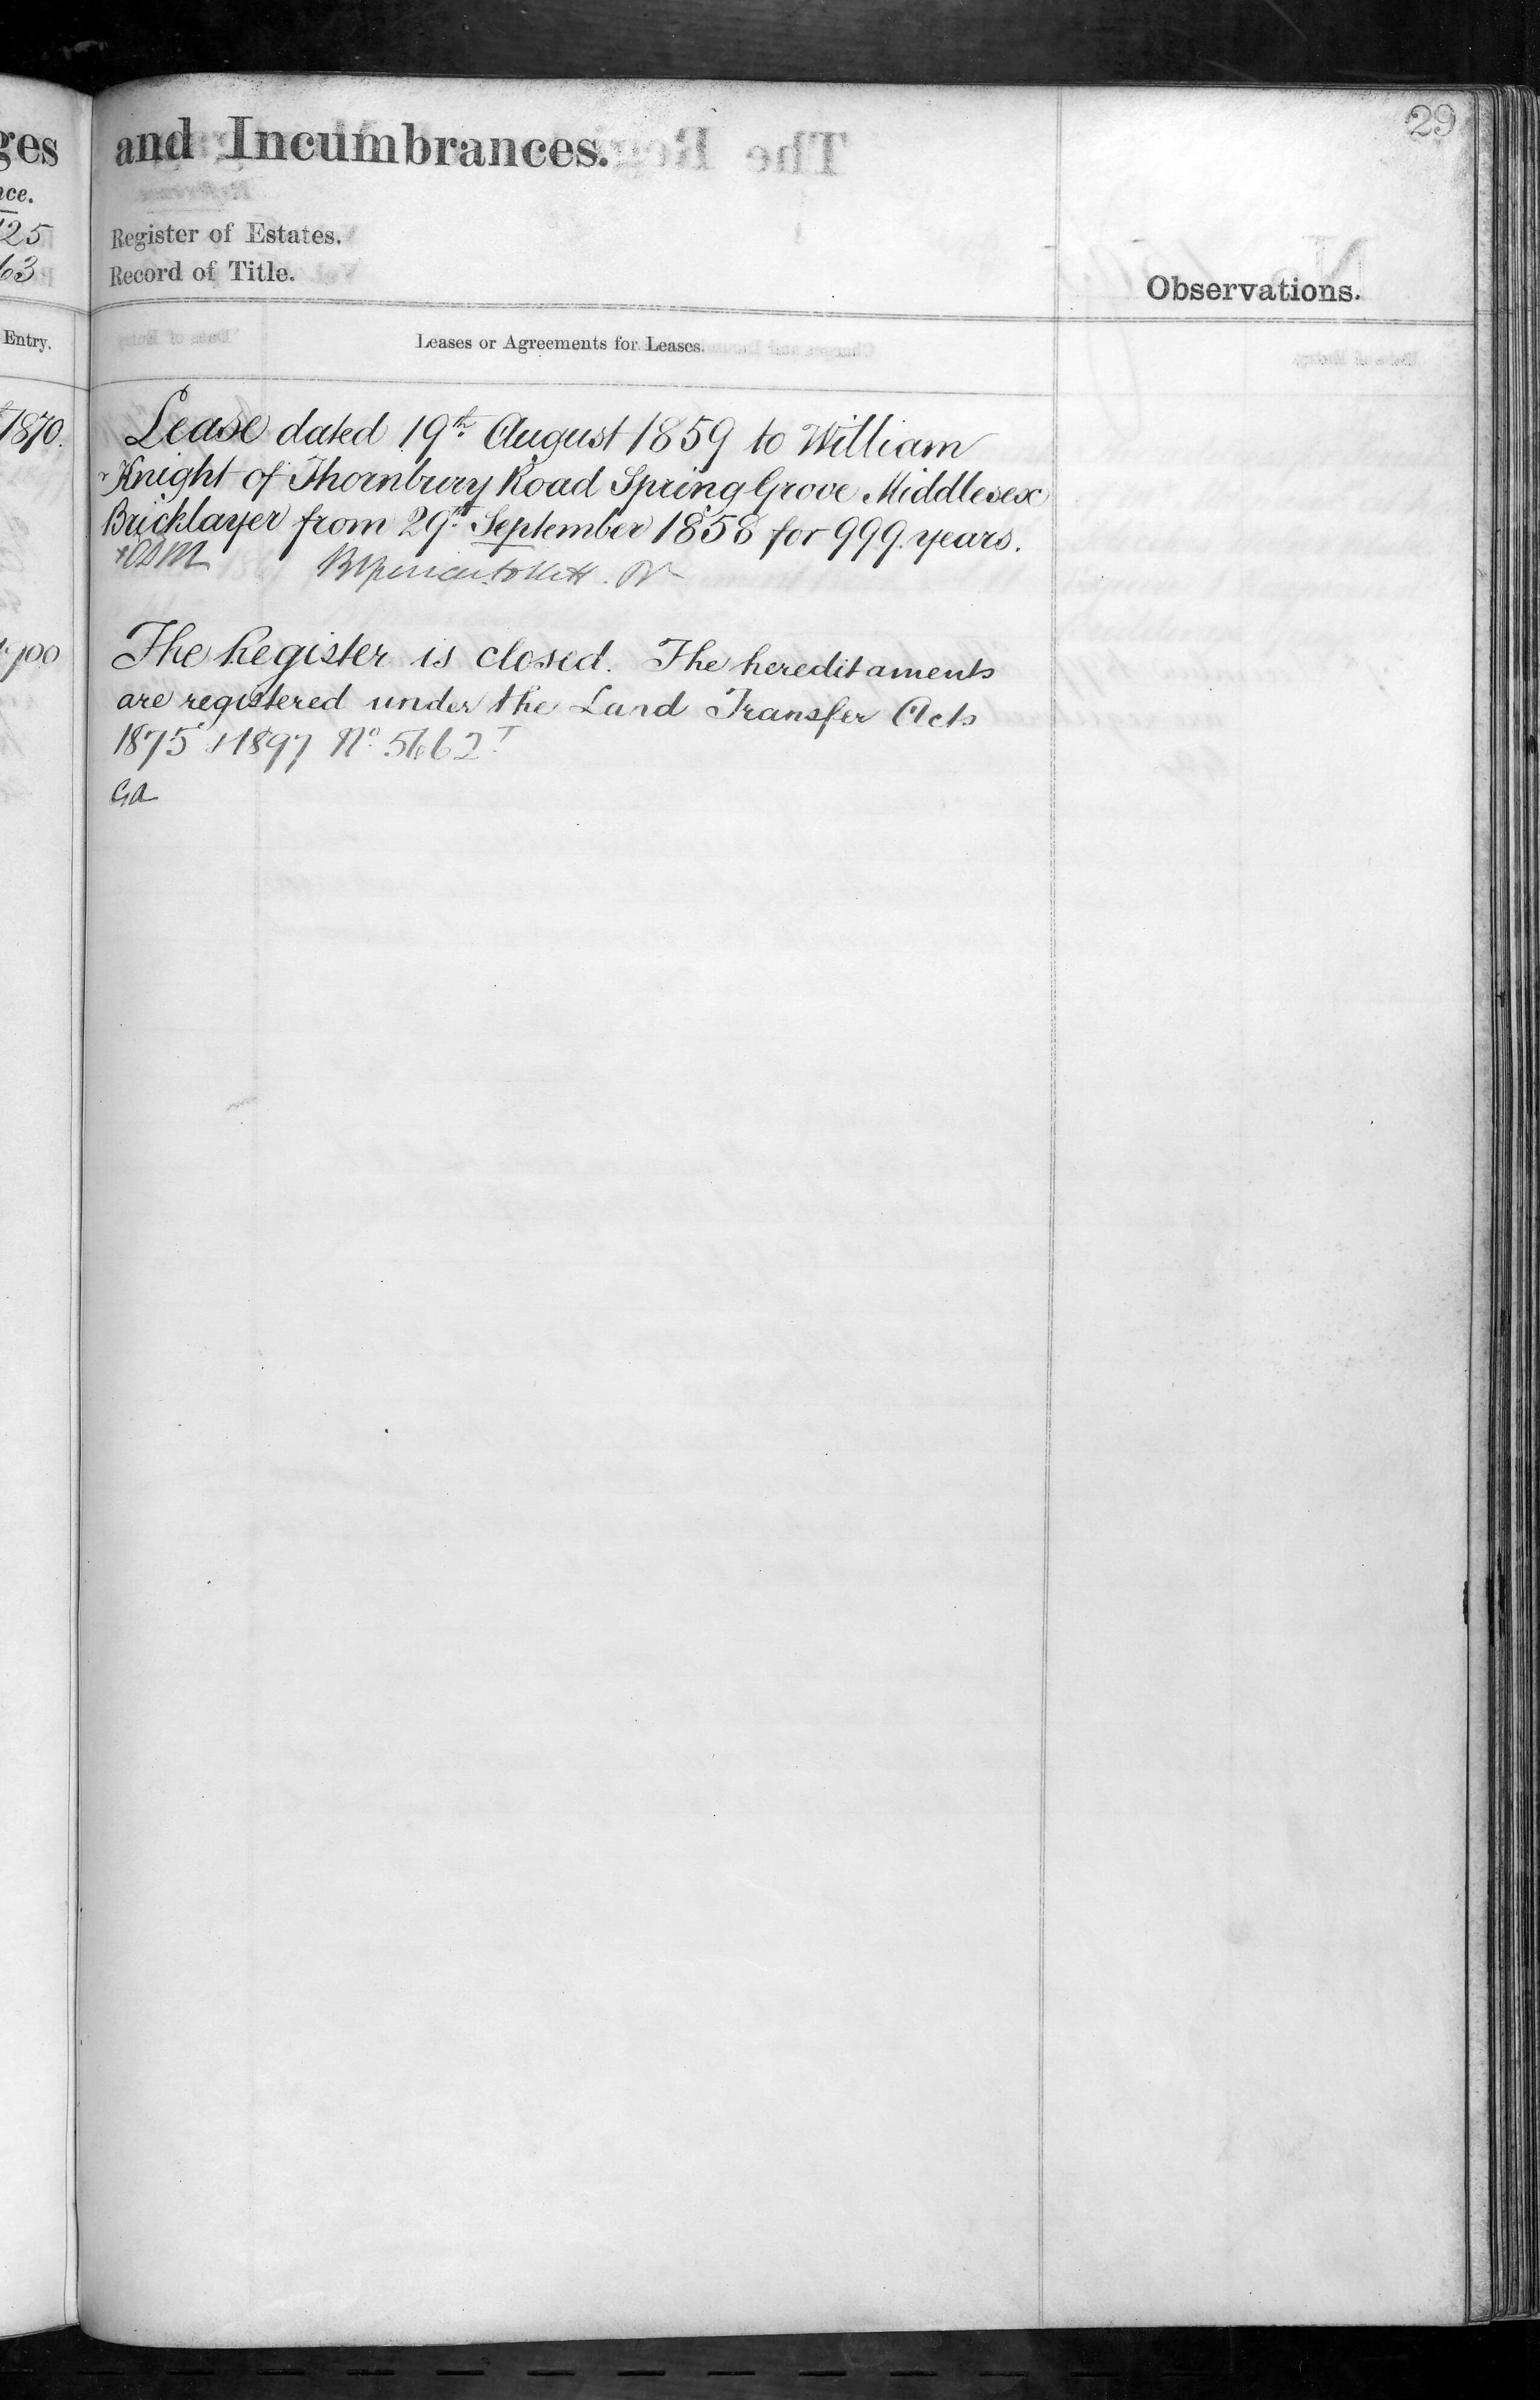 ges
nce.
125
63
Entry.
1870.
1900
29
and Incumbrances.
Register of Estates.
Record of Title.
Observations.
Leases or Agreements for Leases.
Lease dated 19th August 1859 to William
Knight of Thornbury Road Spring Grove Middlesex
Bricklayer from 29th September 1858 for 999 years.
The Register is closed. The hereditaments
are registered under the Land Transfer Acts
1875 & 1897 No. 5662
GA